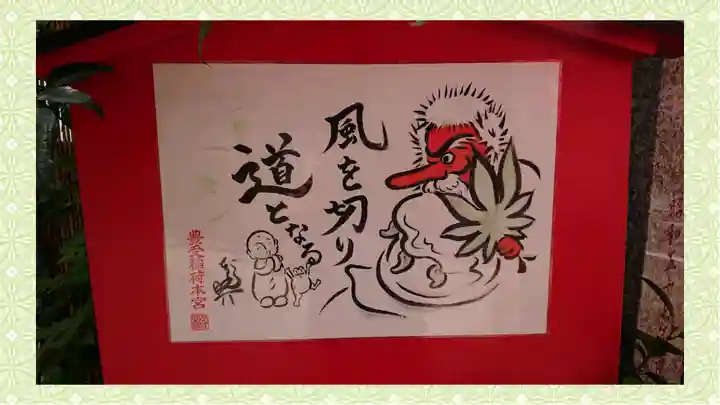 風を切り
道となる
豊受稲荷本宮